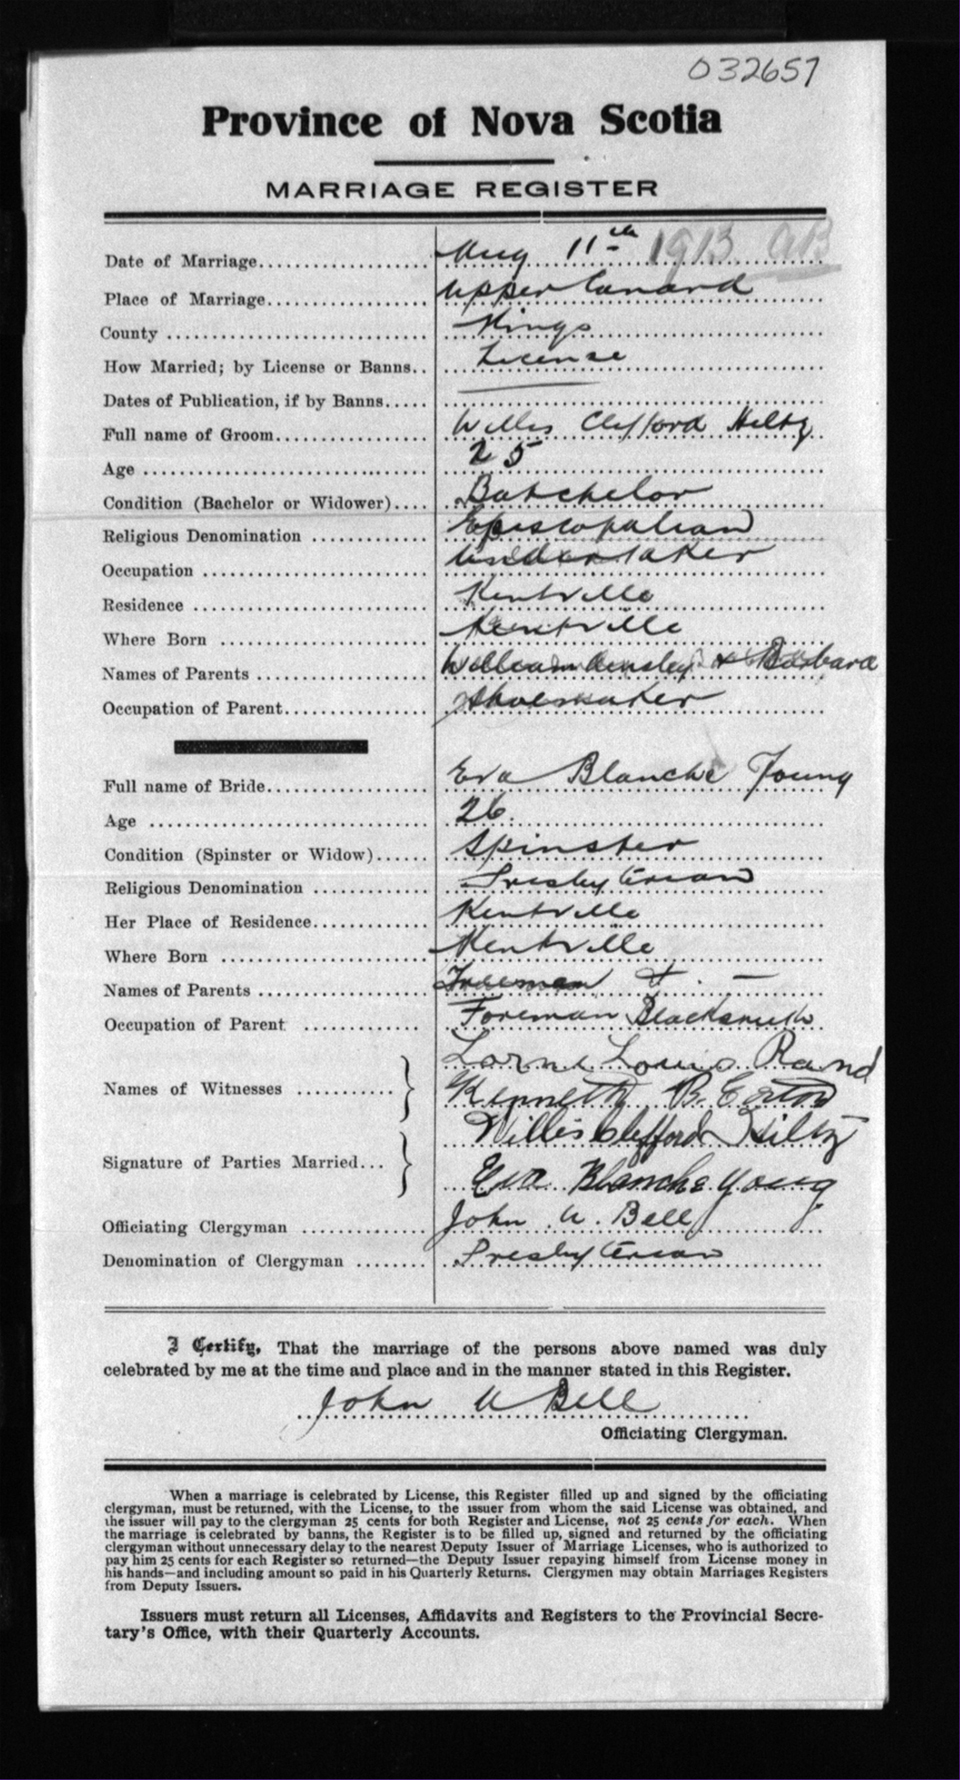 032657
Province of Nova Scotia
MARRIAGE REGISTER
Date of Marriage Aug 11th 1913 AB
Place of Marriage Upper Canard
County Kings
How Married; by License or Banns License
Dates of Publication, if by Banns
Full name of Groom Willis Clifford Hiltz
Age 25
Condition (Bachelor or Widower) Batchelor
Religious Denomination Episcopalian
Occupation Undertaker
Residence Kentville
Where Born Kentville
Names of Parents William & Barbara
Occupation of Parent Shoemaker
Full name of Bride Eva Blanche Young
Age 26.
Condition (Spinster or Widow) Spinster
Religious Denomination Presbyterian
Her Place of Residence Kentville
Where Born Kentville
Names of Parents Freeman & . —
Occupation of Parent Foreman Blacksmith
Lorne Louis Rand
Names of Witnesses Kenneth B.
Willis Clifford Hiltz
Signature of Parties Married...
Eva Blanche Young
Officiating Clergyman John A. Bell
Denomination of Clergyman Presbyterian
I Certify, That the marriage of the persons above named was duly
celebrated by me at the time and place and in the manner stated in this Register.
John A Bell
Officiating Clergyman.
When a marriage is celebrated by License, this Register filled up and signed by the officiating
clergyman, must be returned, with the License, to the issuer from whom the said License was obtained, and
the issuer will pay to the clergyman 25 cents for both Register and License, not 25 cents for each. When
the marriage is celebrated by banns, the Register is to be filled up, signed and returned by the officiating
clergyman without unnecessary delay to the nearest Deputy Issuer of Marriage Licenses, who is authorized to
pay him 25 cents for each Register so returned—the Deputy Issuer repaying himself from License money in
his hands—and including amount so paid in his Quarterly Returns. Clergymen may obtain Marriages Registers
from Deputy Issuers.
Issuers must return all Licenses, Affidavits and Registers to the Provincial Secre-
tary's Office, with their Quarterly Accounts.